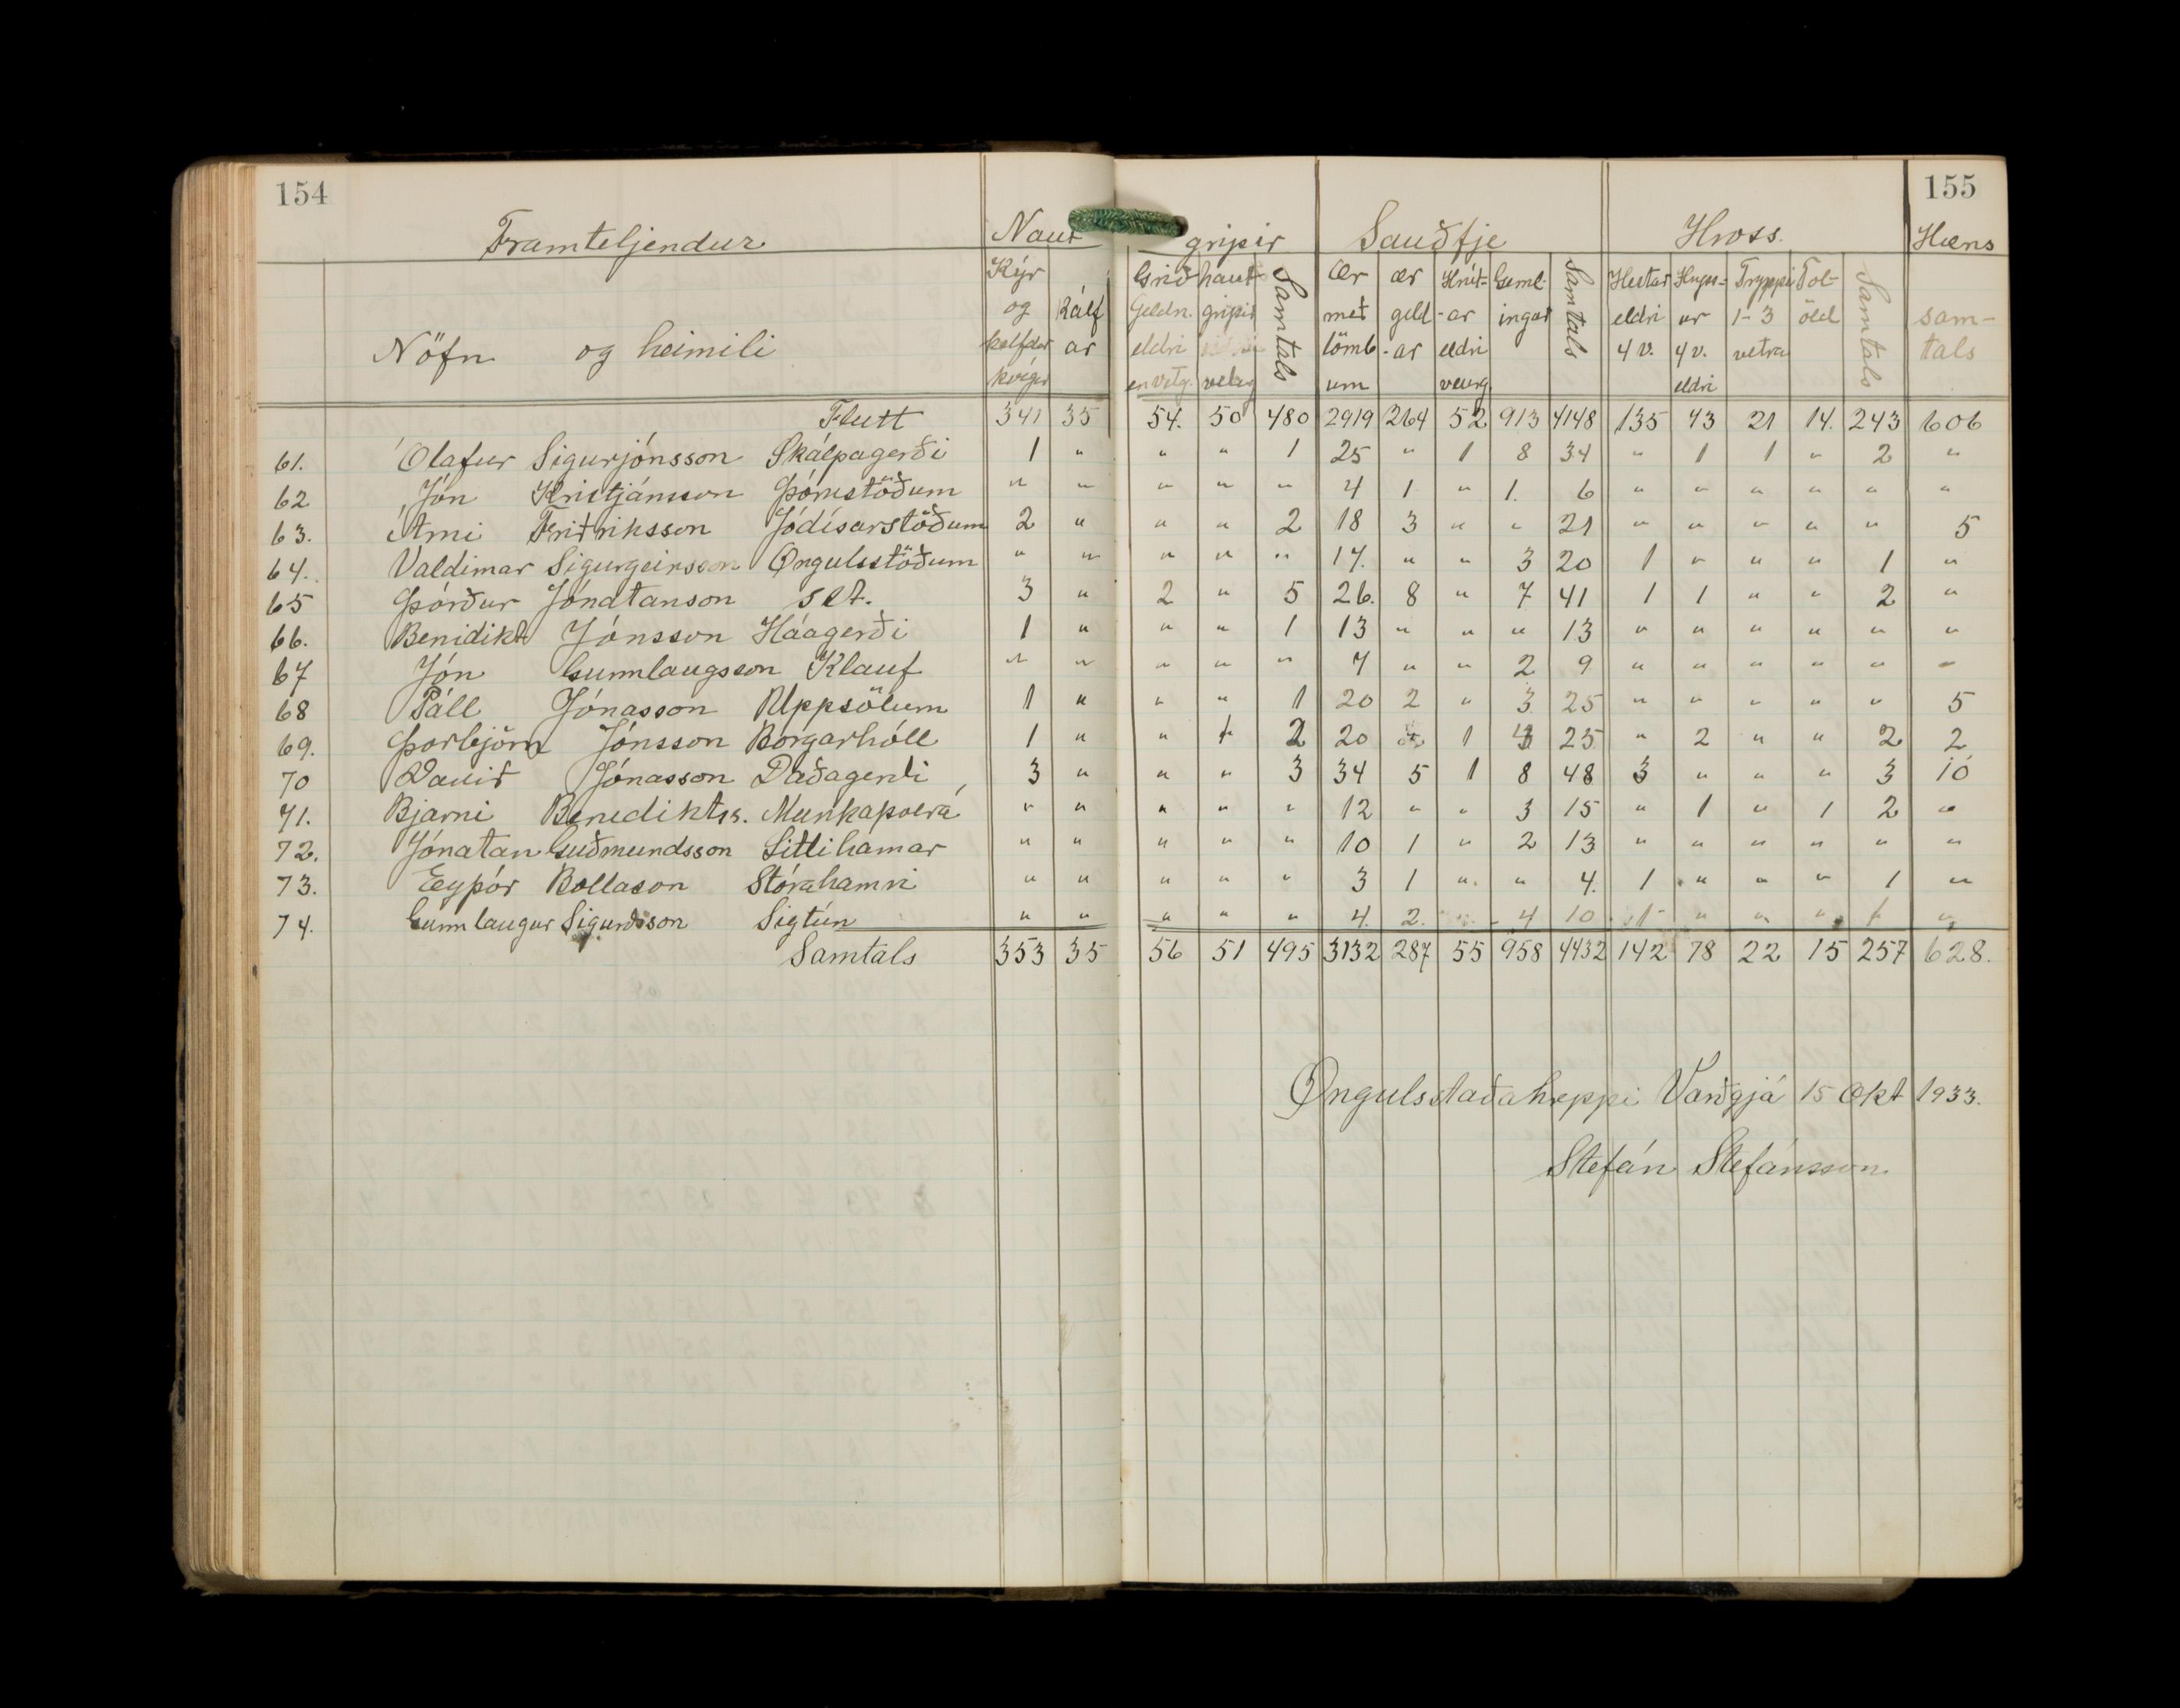 154
155
Framteljendur Naut gripir Sauðfje Hross. Hæns
Nöfn og heimili Kýr og kelfdar kvígur Kálf ar Grið Geldn. eldri en vetg. naut gripir veturg Samtals Ær með lömb um ær geld -ar Hrút- -ar eldri veturg. Geml- ingar Samtals Hestar eldri 4 v. Hryss- ur 4 v. eldri Tryppi 1-3 vetra Fol- öld Samtals sam- tals
Flutt 341 35 54. 50 480 2919 264 52 913 4148 135 73 21 14. 243 606
61. Ólafur Sigurjónsson Skálpagerði 1 " " " 1 25 " 1 8 34 " 1 1 " 2 "
62 Jón Kristjánsson Þórustöðum " " " " " 4 1 " 1. 6 " " " " " "
63. Árni Friðriksson Jódísarstöðum 2 " " " 2 18 3 " " 21 " " " " " 5
64. Valdimar Sigurgeirsson Öngulsstöðum " " " " " 17. " " 3 20 1 " " " 1 "
65 Þórður Jónatanson s st. 3 " 2 " 5 26. 8 " 7 41 1 1 " " 2 "
66. Benidikt Jónsson Háagerði 1 " " " 1 13 " " " 13 " " " " " "
67 Jón Gunnlaugsson Klauf " " " " " 7 " " 2 9 " " " " " "
68 Páll Jónasson Uppsölum 1 " " " 1 20 2 " 3. 25 " " " " " 5
69. Þorbjörn Jónsson Borgarhóll 1 " " 1 2 20 1 25 " 2 " " 2 2
70 Davið Jónasson Daðagerði 3 " " " 3 34 5 1 8 48 3 " " " 3 10
71. Bjarni Benediktss. Munkaþverá " " " " " 12 " " 3 15 " 1 " 1 2 "
72. Jónatan Guðmundsson Litlihamar " " " " " 10 1 " 2 13 " " " " " "
73. Eyþór Bollason Stórahamri " " " " " 3 1 " " 4. 1 " " " 1 "
74. Gunnlaugur Sigurðsson Sigtún " " " " " 4. 2. " 4 10 1 " " " 1 "
Samtals 353 35 56 51 495 3132 287 55 958 4432 142 78 22 15 257 628.
Öngulsstaðahreppi Varðgjá 15 Okt 1933.
Stefán Stefánsson.